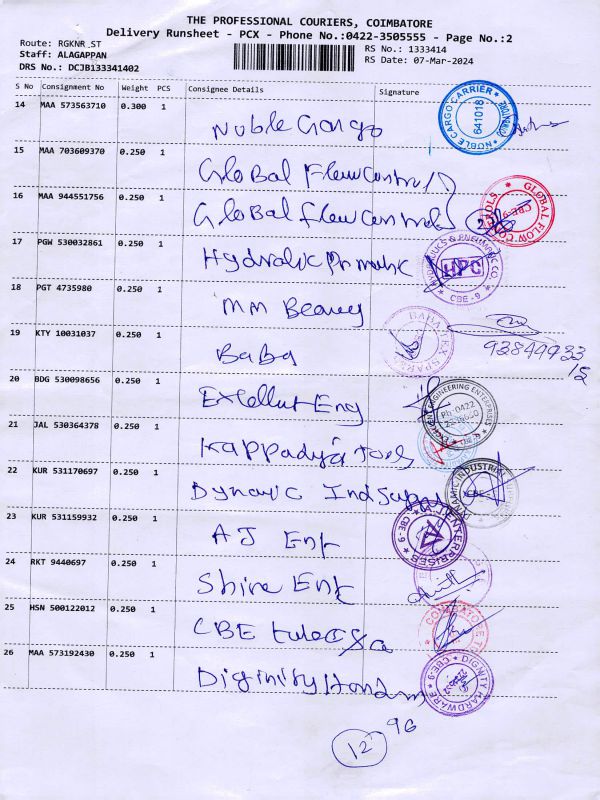 THE PROFESSIONAL COURIERS, COIMBATORE
Delivery Runsheet - PCX - Phone No.:0422-3505555 - Page No.:2
Route: RGKNR_ST
RS No.: 1333414
Staff: ALAGAPPAN
RS Date: 07-Mar-2024
DRS No.: DCJB133341402
S No Consignment No Weight PCS Consignee Details Signature
14 MAA 573563710 0.300 1
Noble Cargo
NOBLE CARGO CARRIER 641018
15 MAA 703609370 0.250 1
Global Flow Control
16 MAA 944551756 0.250 1
Global flow Control
GLOBAL FLOW CONTROLS CBE-9
17 PGW 530032861 0.250 1
Hydralic Pnmatic
HYDRAULICS & PNEUMATIC CO. HPC CBE - 9
18 PGT 4735980 0.250 1
MM Bearing
19 KTY 10031037 0.250 1
Baba
93844933
15
20 BDG 530098656 0.250 1
Excellent Eng
ENGINEERING ENTERPRISES Ph:0422
21 JAL 530364378 0.250 1
Kappadya Tools
22 KUR 531170697 0.250 1
Dynamic Ind Supply
DYNAMIC INDUSTRIAL
23 KUR 531159932 0.250 1
AJ Ent
A.J. ENTERPRISES CBE-9
24 RKT 9440697 0.250 1
Shine Ent
25 HSN 500122012 0.250 1
CBE tube
COIMBATORE
26 MAA 573192430 0.250 1
Diginity Hardw
DIGNITY HARDWARE CBE-9
12 96